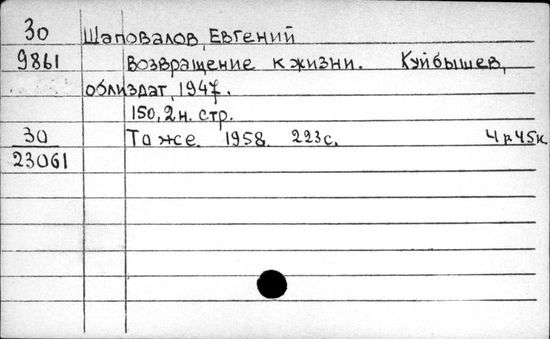 30 Шаповалов, Евгений
9861 Возвращение к жизни. Куйбышев,
облиздат, 1947.
150, 2 н. стр.
30 То же. 1958. 223 с. 4 р 45 к
23061